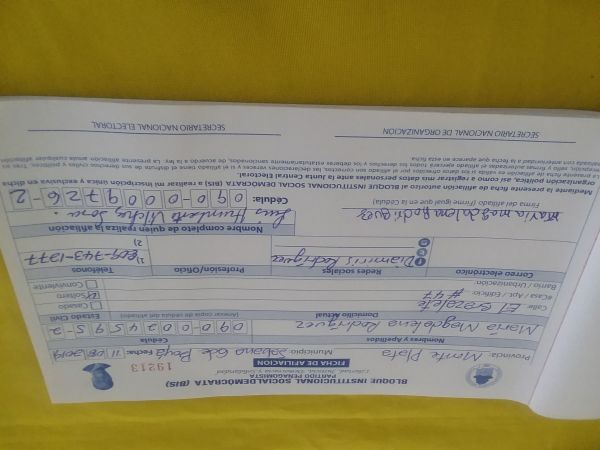 BLOQUE INSTITUCIONAL SOCIALDEMÓCRATA (BIS)
Libertad, Justicia, Democracia y Solidaridad
PARTIDO PENAGOMISTA
FICHA DE AFILIACIÓN
19213
Provincia: Monte Plata Municipio: Sabana Gde de Boyá Fecha: 11/08/2019
Nombres y Apellidos Cédula
María Magdalena Rodríguez 090-0024595-2
Domicilio Actual Estado Civil
Calle: El cazalete Casado
#Casa / Apt / Edificio: #47 Soltero
Barrio / Urbanización: Conviviente
Correo electrónico Redes sociales Profesión/Oficio Teléfonos
Diannris Rodríguez 1) 809-743-1277
2)
Nombre completo de quien realiza afiliación
maria magdalena Rodriguez Luis Humberto
Firma del afiliado (Firma igual que en la Cédula) Cédula: 090-0009726-2
Mediante la presente ficha de afiliación autorizo al BLOQUE INSTITUCIONAL SOCIALDEMÓCRATA (BIS) a realizar mi inscripción única y exclusiva en dicha
organización política, así como a registrar mis datos personales ante la Junta Central Electoral.
SECRETARIO NACIONAL DE ORGANIZACIÓN SECRETARIO NACIONAL ELECTORAL